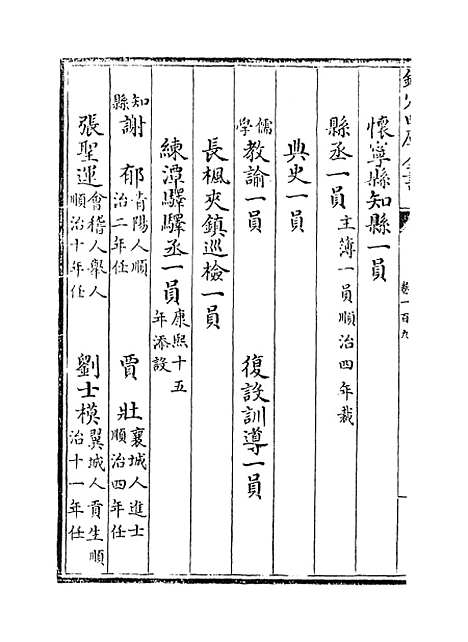 卷一百九
懷寧縣知縣一員
縣丞一員 主簿一員順治四年裁
典史一員
儒學教諭一員 復設訓導一員
長楓夾鎮巡檢一員
練潭驛驛丞一員 康熙十五年添設
知縣謝郁 青陽人順治二年任 賈壯 襄城人進士順治四年任
張聖運 會稽人舉人順治十年任 劉士模 翼城人貢生順治十一年任